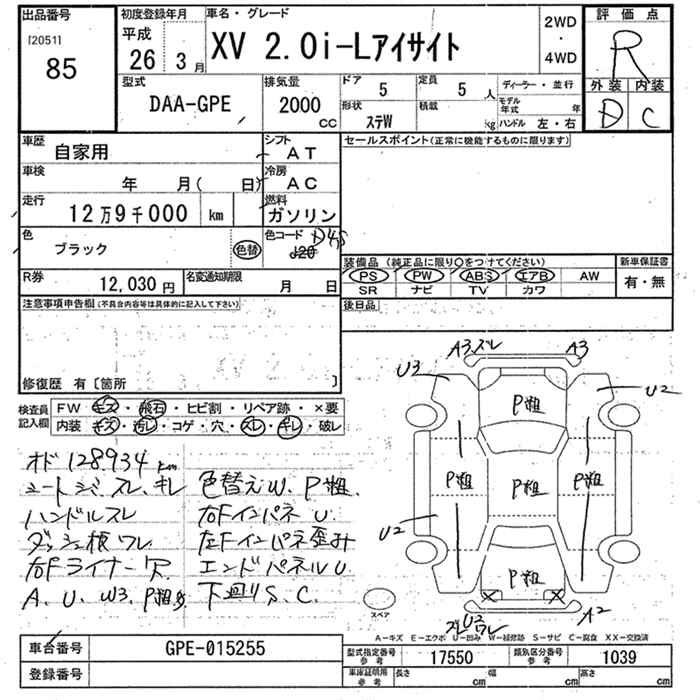 出品番号 初度登録年月 車名・グレード 2WD 評価点
[2051] 平成 XV 2.0i-Lアイサイト ・ R
85 26 3月 4WD
型式 排気量 ドア 定員 ディーラー・並行 外装 内装
DAA-GPE 2000 CC 5 5人 モデル年式 年 D C
形状 ステW 積載 kg ハンドル 左・右
車歴 自家用 シフト AT セールスポイント(正常に機能するものに限ります)
車検 年 月( 日) 冷房 AC
走行 12万9千000 km 燃料 ガソリン
色 ブラック 色替 色コード D4S
装備品(純正品に限り○をつけてください) 新車保証書
R券 12,030円 名変通知期限 月 日 PS PW ABS エアB AW 有・無
SR ナビ TV カワ
注意事項申告欄(不具合内容等は具体的に記入して下さい) 後日品
修復歴 有〔箇所 〕
検査員記入欄 FW キズ・飛石・ヒビ割・リペア跡・×要
内装 キズ・汚レ・コゲ・穴・スレ・キレ・破レ
オド 128934km
シートシミ、スレ、キレ 色替えW、P粗
ハンドルスレ 右FインパネU.
ダッシュ板ワレ 左Fインパネ歪み
右Fライナー欠 エンドパネルU
A、U、W3、P粗 下廻りS、C.
A3ズレ A3
U3 U2
P粗
P粗 P粗 P粗
U2
P粗
× ×
スペア U3 ワレ A2
A-キズ E-エクボ U-凹み W-補修跡 S-サビ C-腐食 XX-交換済
車台番号 GPE-015255 型式指定番号 参考 17550 類別区分番号 参考 1039
登録番号 車庫証明用 参考 長さ cm 幅 cm 高さ cm